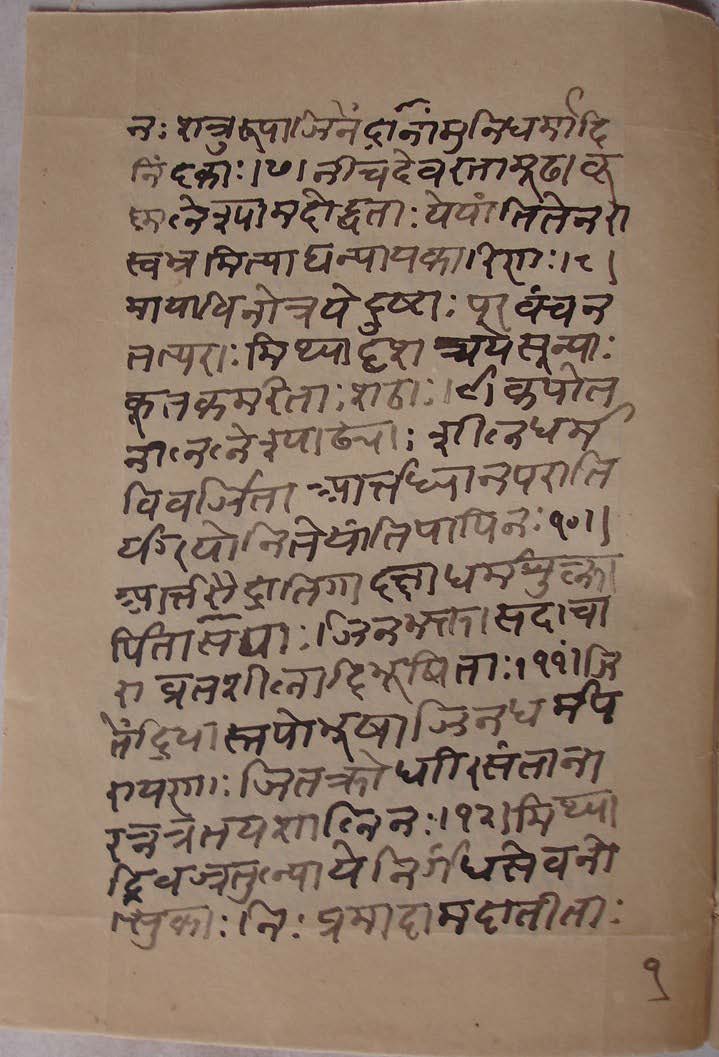 नः शत्रुरूपाजिनेंद्रानांमुनिधर्मादि
निंदकाः।७।नीचदेवरतामूढा।कृ
ष्णलेश्यामदोद्धताः येयांतितेनरा
स्वभ्रमित्याद्यन्यायकारिणः।८।
मायाविनोत्रयेदुष्टाः परवंचन
तत्पराः मिथ्यादृशश्चयेसून्याः
कूतकर्मरताःशठाः।९।कपोत
नीललेश्याढ्याः शीलधर्म
विवर्जिता आर्त्तध्यानपराति
र्यग्योनितेयांतिपापिनः१०।।
आर्त्तरौद्रातिगादक्षाधर्मशुक्ला
र्पिताशयाः।जिनभक्तासदाचा
राव्रतशीलादिभूषिताः।११।जि
तेंद्रियास्तपोभूषाजिनधर्मप
रायणाः जितक्रोधारिसंताना
रत्नत्रतयशालिनः।१२।मिथ्या
द्रिवज्रतुल्यायेनिर्ग्रंथसेवनो
त्सुकाः निः प्रमादामदातीताः
१